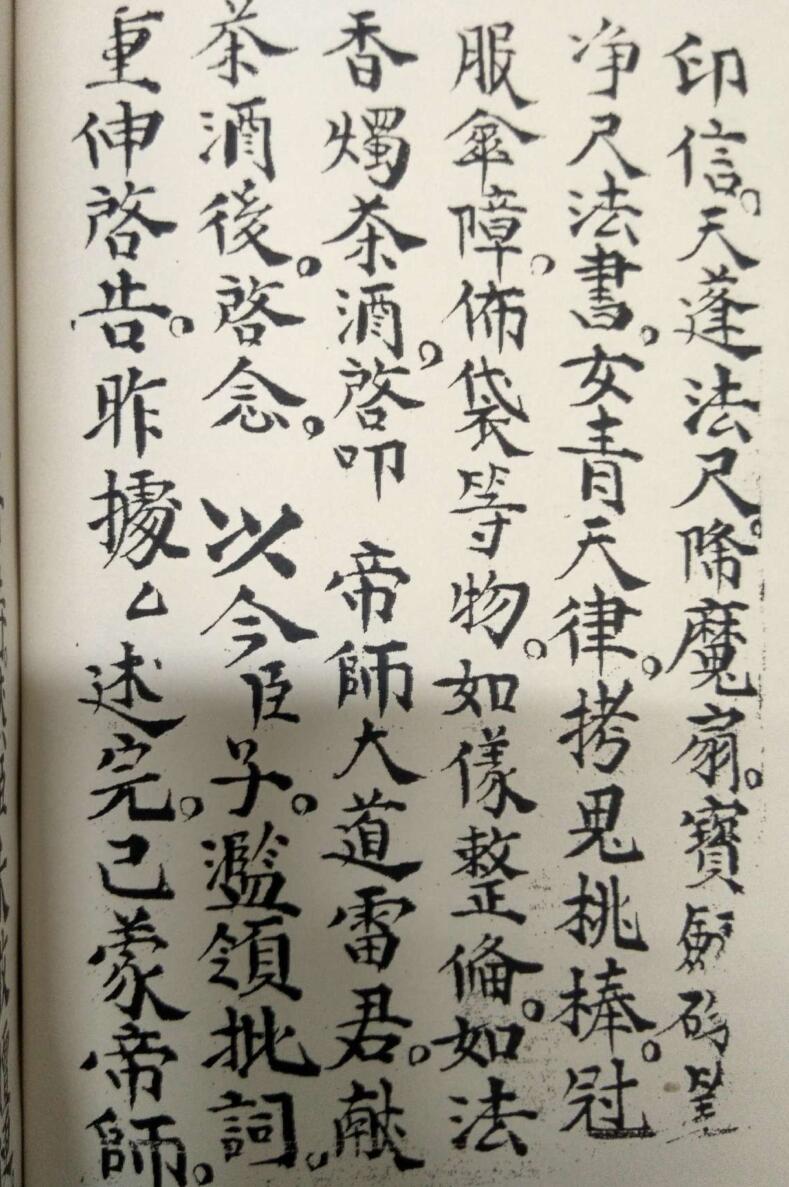 印信。天蓬法尺。降魔扇。寶劍
净尺法書。女青天律。拷鬼桃棒。冠
服傘障。佈袋等物。如儀整俻。如法
香燭茶酒。啓叩 帝師大道雷君。献
茶酒後。啓念。 以今臣子。濫領批詞。
重伸啓告。昨據厶述完。已蒙帝師。